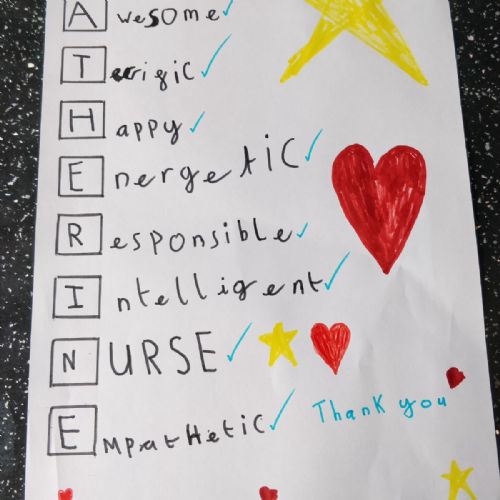 Awesome
Terrific
Happy
Energetic
Responsible
Intelligent
NURSE
EMPatHetic
Thank you